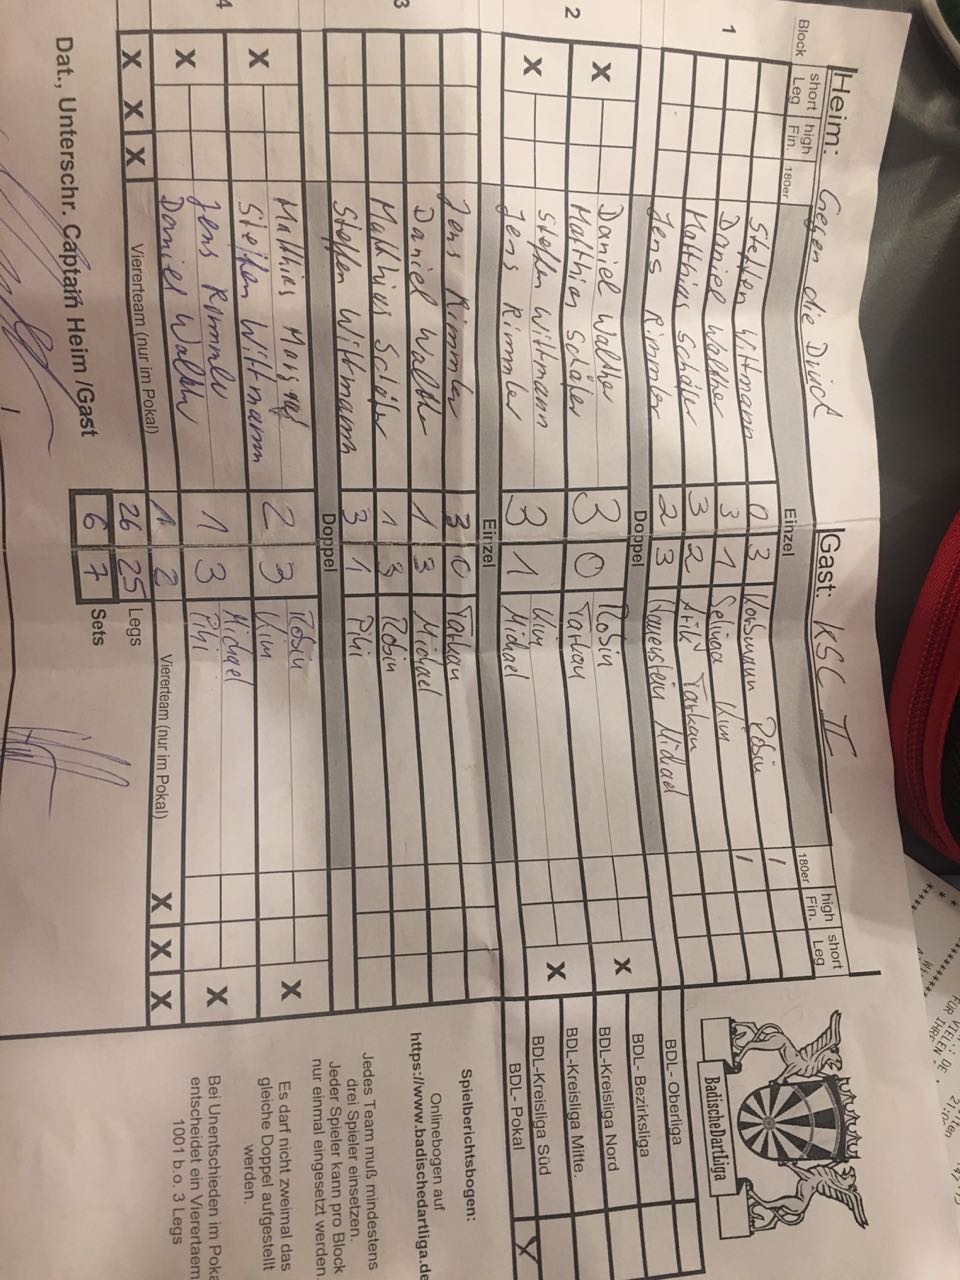 Heim: Gegen die Druck Gast: KSC II
Block short Leg high Fin. 180er Einzel 180er high Fin. short Leg
1 Steffen Wittmann 0 3 Robin 1
Daniel Walther 3 1 Selinda Kim 1
Matthias Schäfer 3 2 Arik Tarkan
Jens Rimmler 2 3 Hauenstein Michael
Doppel
2 X Daniel Walther 3 0 Robin X
Matthias Schäfer Tarkan
X Steffen Wittmann 3 1 Kim X
Jens Rimmler Michael
Einzel
3 Jens Rimmler 3 0 Tarkan
Daniel Walther 1 3 Michael
Matthias Schäfer 1 3 Robin
Steffen Wittmann 3 1 Pihi
Doppel
4 X Mathias 2 3 Robin X
Steffen Wittmann Kim
X Jens Rimmler 1 3 Michael X
Daniel Walther Pihi
X X X Viererteam (nur im Pokal) 1 2 Viererteam (nur im Pokal) X X X
26 25 Legs
Dat., Unterschr. Captain Heim /Gast 6 7 Sets
BadischeDartLiga
BDL - Oberliga
BDL - Bezirksliga
BDL-Kreisliga Nord
BDL-Kreisliga Mitte.
BDL-Kreisliga Süd
BDL - Pokal X
Spielberichtsbogen:
Onlinebogen auf
https://www.badischedartliga.de
Jedes Team muß mindestens
drei Spieler einsetzen.
Jeder Spieler kann pro Block
nur einmal eingesetzt werden.
Es darf nicht zweimal das
gleiche Doppel aufgestellt
werden.
Bei Unentschieden im Poka
entscheidet ein Vierertaem
1001 b.o. 3 Legs